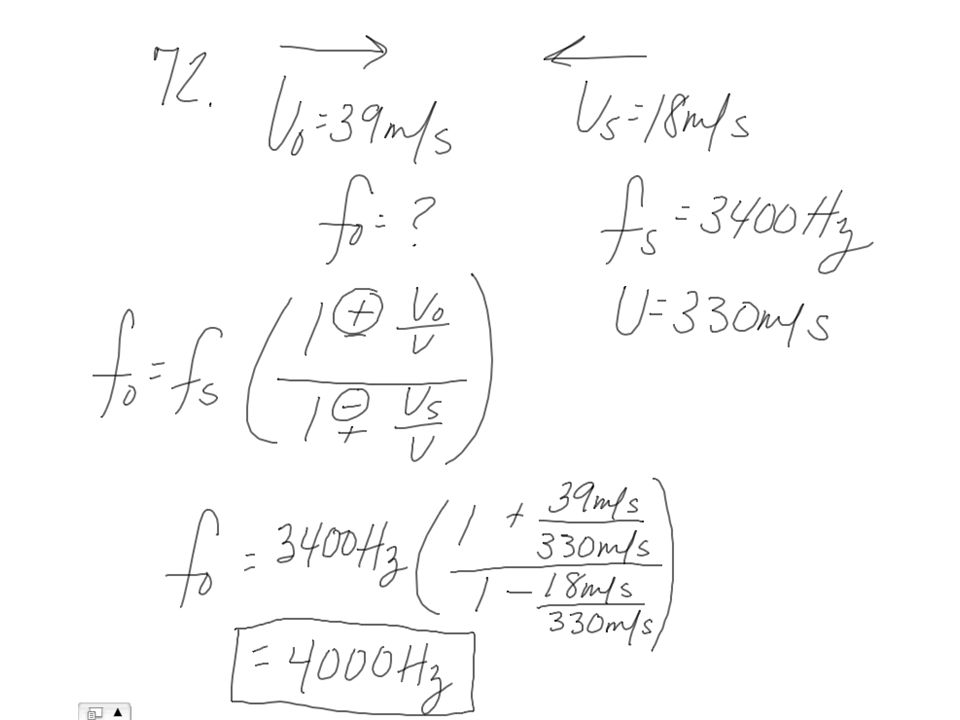 72.
V₀=39m/s
Vₛ=18m/s
f₀=?
fₛ=3400Hz
V=330m/s
f₀=fₛ((1 ± V₀/V)/(1 ∓ Vₛ/V))
f₀=3400Hz((1 + 39m/s/330m/s)/(1 - 18m/s/330m/s))
=4000Hz